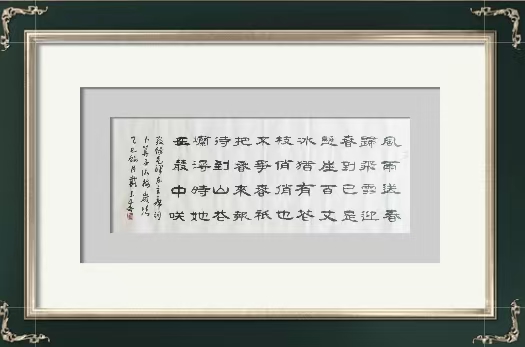 風雨送春
歸飛雪迎
春到已是
懸崖百丈
冰猶有花
枝俏俏也
不爭春祇
把春來報
待到山花
爛漫時她
在叢中咲
敬錄毛澤東主席詞
卜算子詠梅歲次
乙巳